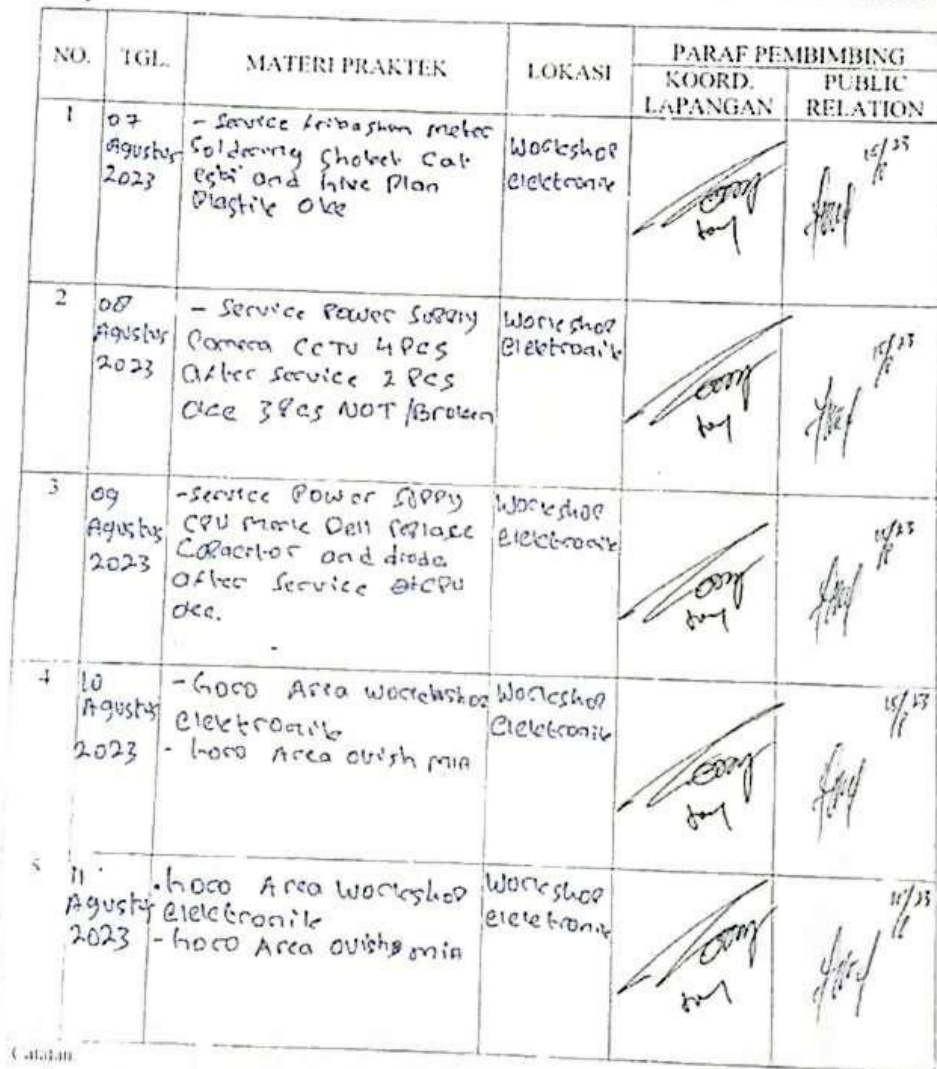 NO. TGL. MATERI PRAKTEK LOKASI PARAF PEMBIMBING
KOORD. LAPANGAN PUBLIC RELATION
1
07 Agustus 2023
- Service meter
Soldering
and Plan
Plastik oke
Workshop
elektronik
15/8 23
2
08 Agustus 2023
- Service Power Supply
Camera CCTV 4 Pcs
After service 2 Pcs
oke 3 Pcs NOT /Broken
Workshop
elektronik
15/8 23
3
09 Agustus 2023
- Service Power Supply
CPU Merk Dell replace
Capacitor and dioda
after Service CPU
oke.
Workshop
elektronik
15/8 23
4
10 Agustus 2023
- Area
elektronik
- Area
Workshop
elektronik
15/8 23
5
11 Agustus 2023
- Area Workshop
elektronik
- Area
Workshop
elektronik
15/8 23
Catatan